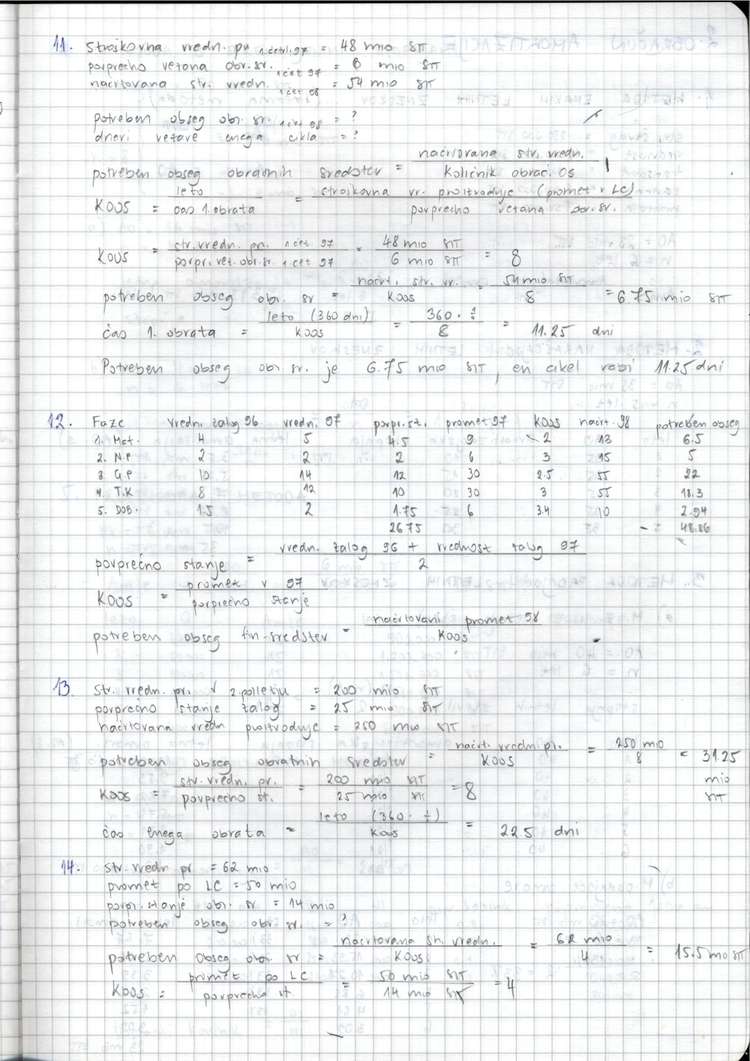 11. Stroškovna vredn. pr. 1 četrl. 97 = 48 mio SIT
povprečno vezana obr. sr. 1 čet 97 = 6 mio SIT
načrtovana str. vredn. 1 čet 98 = 54 mio SIT
potreben obseg obr. sr. 1 čet 98 = ?
dnevi vezave enega cikla = ?
potreben obseg obratnih sredstev = načrtovana str. vredn. / količnik obrač. OS
KOOS = leto / čas 1. obrata = stroškovna vr. proizvodnje (promet v LC) / povprečno vezana obr. sr.
KOOS = str. vredn. pr. 1 čet 97 / povpr. vez. obr. sr. 1 čet 97 = 48 mio SIT / 6 mio SIT = 8
potreben obseg obr. sr = načrt. str. vr. / KOOS = 54 mio SIT / 8 = 6.75 mio SIT
čas 1. obrata = leto (360 dni) / KOOS = 360 · 1/4 / 8 = 11.25 dni
Potreben obseg obr sr. je 6.75 mio SIT, en cikel rabi 11.25 dni
12. Faze vredn. zalog 96 vredn. 97 povpr. st. promet 97 KOOS načrt. 98 potreben obseg
1. Mat. 4 5 4.5 9 2 13 6.5
2. N.P 2 2 2 6 3 15 5
3. G.P 10 14 12 30 2.5 55 22
4. T.K 8 12 10 30 3 55 18.3
5. DOB. 1.5 2 1.75 6 3.4 10 2.94
26.75 48.86
povprečno stanje = vredn. zalog 96 + vrednost zalog 97 / 2
KOOS = promet v 97 / povprečno stanje
potreben obseg fin. sredstev = načrtovani promet 98 / KOOS
13. Str. vredn. pr. v 2 polletju = 200 mio SIT
povprečno stanje zalog = 25 mio SIT
načrtovana vredn proizvodnje = 250 mio SIT
potreben obseg obratnih sredstev = načrt. vredn. pr. / KOOS = 250 mio / 8 = 31.25 mio SIT
KOOS = str. vredn. pr. / povprečno st. = 200 mio SIT / 25 mio SIT = 8
čas enega obrata = leto (360 · 1/2) / KOOS = 22.5 dni
14. Str. vredn pr = 62 mio
promet po LC = 50 mio
povpr. stanje obr. sr = 14 mio
potreben obseg obr. sr. = ?
potreben obseg obr sr = načrtovana str. vredn. / KOOS = 62 mio / 4 = 15.5 mio SIT
KOOS = promet po LC / povprečno st = 50 mio SIT / 14 mio SIT = 4